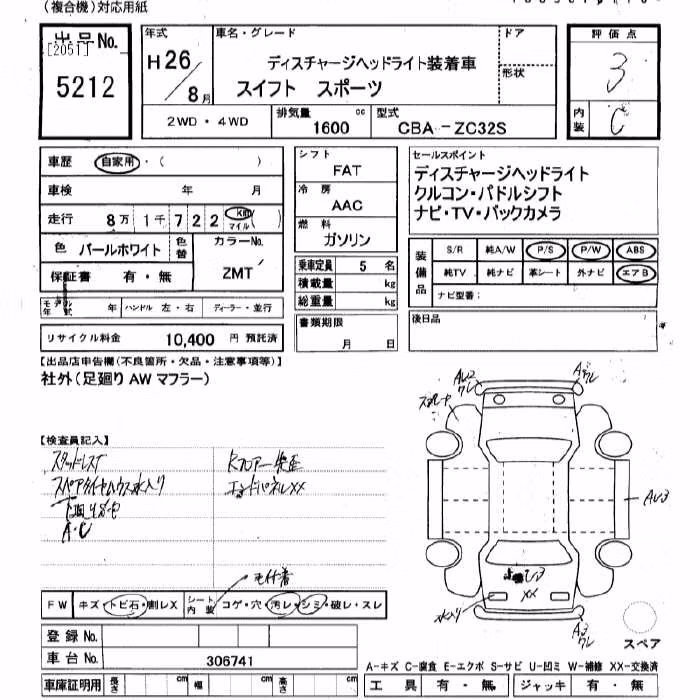 (複合機)対応用紙
出品No.
[2051]
5212
年式
H26/8月
車名・グレード
ディスチャージヘッドライト装着車
スイフト スポーツ
ドア
形状
評価点
3
内装
C
2WD・4WD
排気量 cc
1600
型式
CBA-ZC32S
車歴 自家用・( )
車検 年 月
走行 8万1千722 km マイル ( )
色 パールホワイト 色替
カラーNo.
ZMT
保証書 有・無
モデル年式 年 ハンドル 左・右 ディーラー・並行
リサイクル料金 10,400 円 預託済
シフト
FAT
冷房
AAC
燃料
ガソリン
乗車定員 5 名
積載量 kg
総重量 kg
書類期限
月 日
セールスポイント
ディスチャージヘッドライト
クルコン・パドルシフト
ナビ・TV・バックカメラ
装備品
S/R 純A/W P/S P/W ABS
純TV 純ナビ 革シート 外ナビ エアB
ナビ型番:
後日品
【出品店申告欄(不良箇所・欠品・注意事項等)】
社外(足廻り AW マフラー)
【検査員記入】
スタッドレス
スペアタイヤハウス水入り
下廻りサビ
A・C
エンドパネルXX
毛付着
FW キズ・トビ石・割レX
シート内装 コゲ・穴・汚レ・シミ・破レ・スレ
登録No.
車台No. 306741
車庫証明用 長さ cm 幅 cm 高さ cm
AU2
ワレ
A
ワレ
AU3
U3
XX
水入り
A3
ワレ
スペア
A-キズ C-腐食 E-エクボ S-サビ U-凹ミ W-補修 XX-交換済
工具 有・無 ジャッキ 有・無